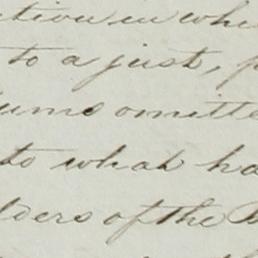 ction in whi
to a just, p
ums omitte
to what ha
lders of the B